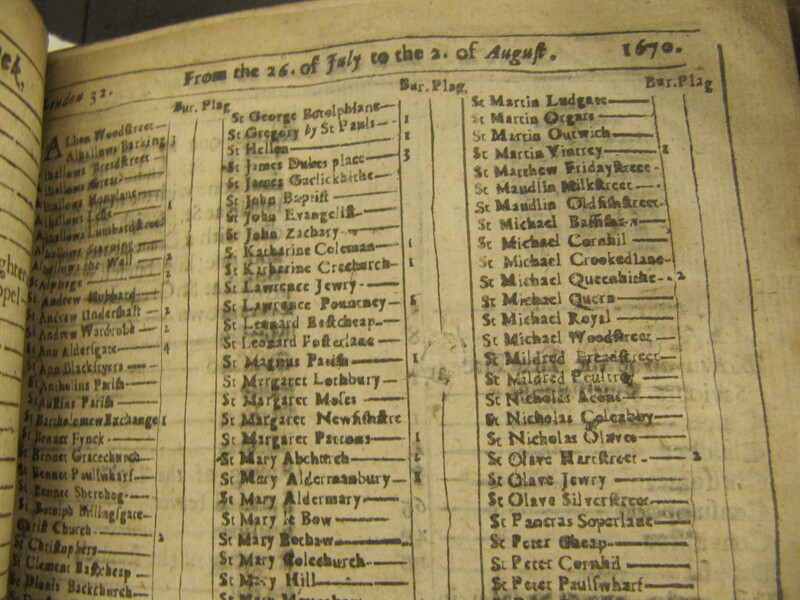 London 32. From the 26. of July to the 2. of August. 1670.
Bur. Plag
Alban Woodstreet
Alhallows Barking 3
Alhallows Breadstreet
Alhallows Great
Alhallows Honylane
Alhallows Lesse 1
Alhallows Lumbardstreet
Alhallows Staining
Alhallows the Wall 2
St Alphage 2
St Andrew Hubbard
St Andrew Undershaft 2
St Andrew Wardrobe 2
St Ann Aldersgate 4
St Ann Blackfryers
St Antholins Parish
St Austins Parish
St Bartholomew Exchange 1
St Bennet Fynck
St Bennet Gracechurch
St Bennet Paulswharf
St Bennet Sherehog
St Botolph Billingsgate
Christ Church 2
St Christophers
St Clement Eastcheap
St Dionis Backchurch
Bur. Plag
St George Botolphlane
St Gregory by St Pauls 1
St Hellen 1
St James Dukes place 3
St James Garlickhithe
St John Baptist
St John Evangelist
St John Zachary
St Katharine Coleman 1
St Katharine Creechurch 1
St Lawrence Jewry
St Lawrence Pountney 1
St Leonard Eastcheap
St Leonard Fosterlane
St Magnus Parish 1
St Margaret Lothbury
St Margaret Moses
St Margaret Newfishstre
St Margaret Pattons 1
St Mary Abchurch
St Mary Aldermanbury 1
St Mary Aldermary
St Mary le Bow
St Mary Bothaw
St Mary Colechurch
St Mary Hill
Bur. Plag
St Martin Ludgate
St Martin Orgars
St Martin Outwich
St Martin Vintrey 1
St Matthew Fridaystreet
St Maudlin Milkstreet
St Maudlin Oldfishstreet
St Michael Bassishaw
St Michael Cornhil
St Michael Crookedlane
St Michael Queenhithe 2
St Michael Quern
St Michael Royal
St Michael Woodstreet
St Mildred Breadstreet
St Mildred Poultrey
St Nicholas Acons
St Nicholas Coleabby
St Nicholas Olaves
St Olave Hartstreet 2
St Olave Jewry
St Olave Silverstreet
St Pancras Soperlane
St Peter Cheap
St Peter Cornhil
St Peter Paulswharf